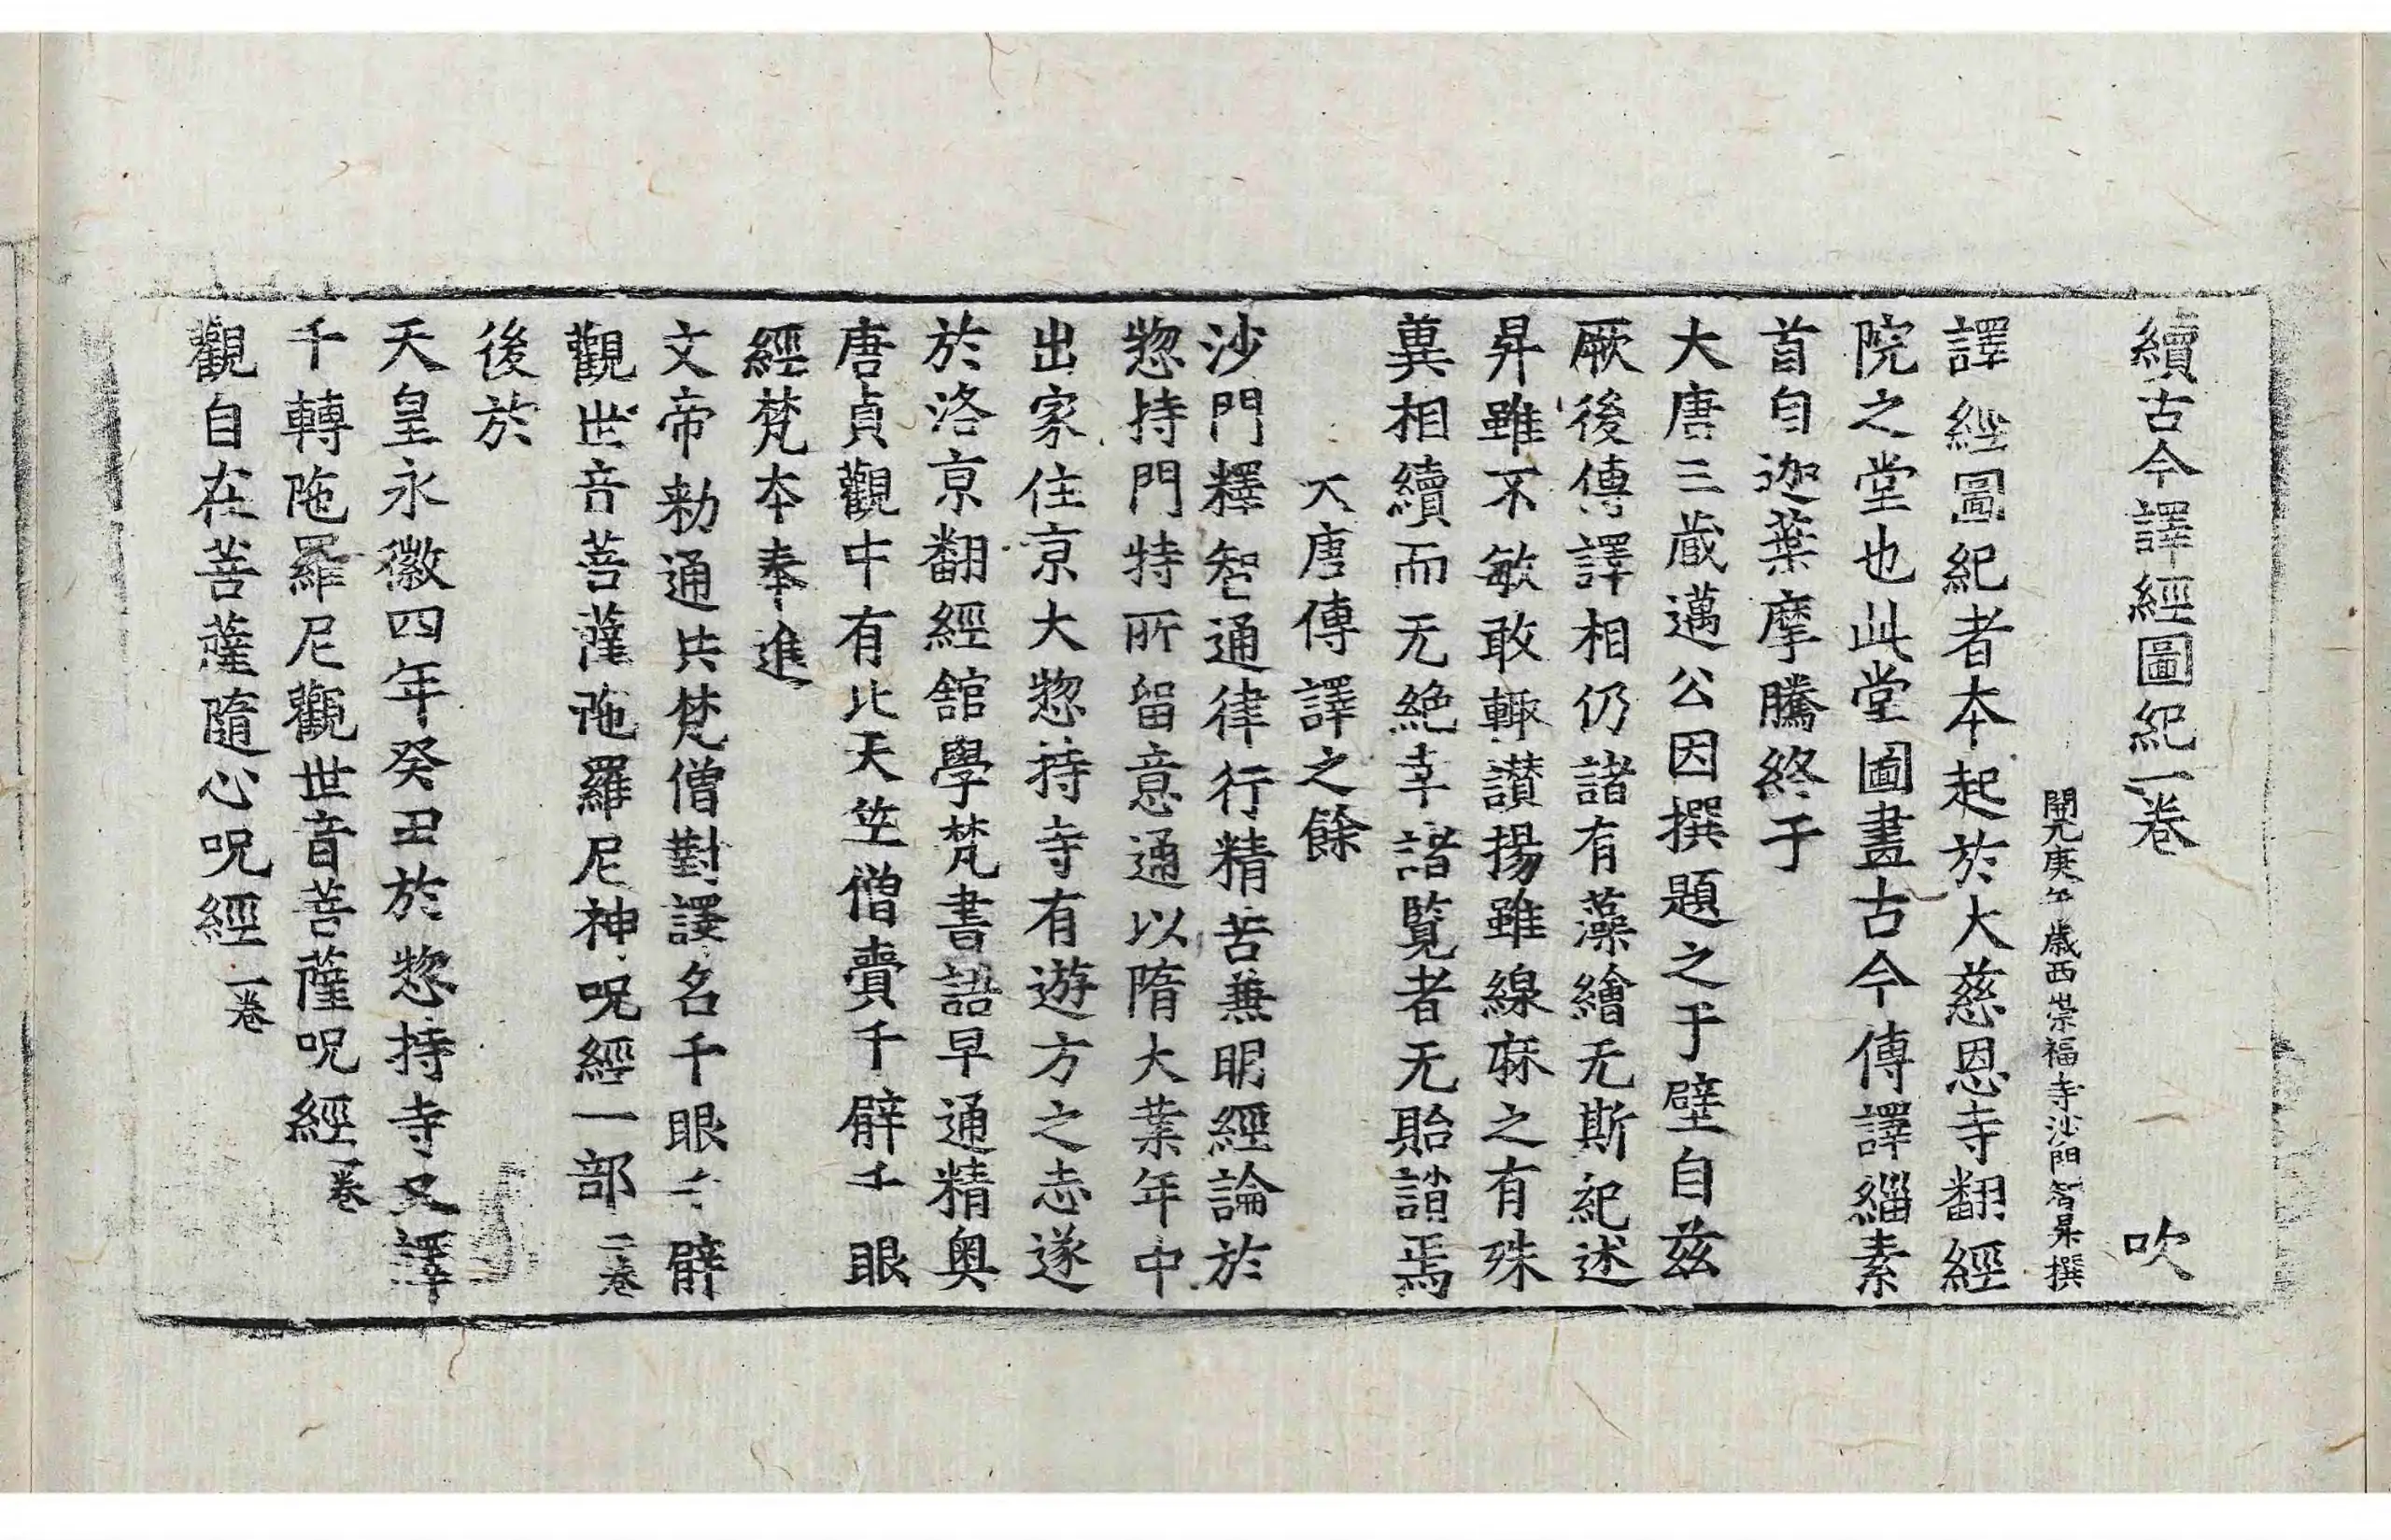 續古今譯經圖紀一卷 吹
開元庚午歲西崇福寺沙門智昇撰
譯經圖紀者本起於大慈恩寺翻經
院之堂也此堂圖畫古今傳譯緇素
首自迦葉摩騰終于
大唐三藏邁公因撰題之于壁自茲
厥後傳譯相仍諸有藻繪无斯紀述
昇雖不敏敢輙讃揚雖線麻之有殊
兾相續而无絶幸諸覧者无貽誚焉
大唐傳譯之餘
沙門釋智通律行精苦兼明經論於
惣持門特所留意通以隋大葉年中
出家住京大惣持寺有遊方之志遂
於洛京翻經舘學梵書語早通精奥
唐貞觀中有北天竺僧賷千臂千眼
經梵本奉進
文帝勑通共梵僧對譯名千眼千臂
觀世音菩薩陁羅尼神呪經一部二卷
後於
天皇永徽四年癸丑於惣持寺又譯
千轉陁羅尼觀世音菩薩呪經一卷
觀自在菩薩隨心呪經一卷